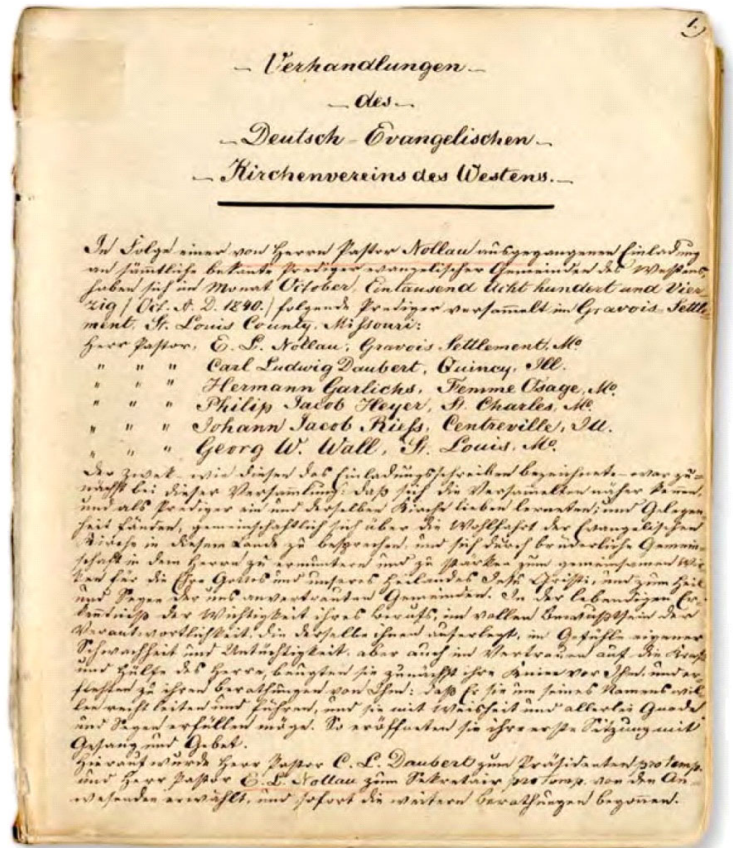 1.
Verhandlungen
des
Deutsch-Evangelischen
Kirchenvereins des Westens.
In Folge einer von Herrn Pastor Nollau ausgegangenen Einladung
an sämmtliche bekante Prediger evangelischer Gemeinden des Westens,
haben sich im Monat October, Eintausend Acht hundert und Vier-
zig / Oct. A. D. 1840. / folgende Prediger versammelt im Gravois-Settle-
ment, St. Louis County, Missouri:
Herr Pastor, E. L. Nollau, Gravois Settlement, Mo.
" " " Carl Ludwig Daubert, Quincy, Ill.
" " " Hermann Garlichs, Femme Osage, Mo.
" " " Philip Jacob Heyer, St. Charles, Mo.
" " " Johann Jacob Riess, Centreville, Ill.
" " " Georg W. Wall, St. Louis, Mo.
Der Zwek – wie diesen das Einladungsschreiben bezeichnete – war zu-
nächst bei dieser Versammlung: daß sich die Versammelten näher kennen,
und als Prediger ein und derselben Kirche lieben lerneten; und Gelegen-
heit fänden, gemeinschaftlich sich über die Wohlfahrt der Evangelischen
Kirche in diesem Lande zu besprechen, und sich durch brüderliche Gemein-
schaft in dem Herrn zu ermuntern und zu stärken zum gemeinsamen Wir-
ken für die Ehre Gottes und unseres Heilandes Jesu Christi; und zum Heil
und Segen der uns anvertrauten Gemeinden. In der lebendigen Er-
kentniß der Wichtigkeit ihres Berufs, im vollen Bewußtsein der
Verantwortlichkeit, die derselbe ihnen auferlegt, im Gefühle eigener
Schwachheit und Untüchtigkeit, aber auch im Vertrauen auf die Kraft
und Hülfe des Herrn, beugten sie zunächst ihre Kniee vor Ihm, und er-
flehten zu ihren Berathungen von Ihm: daß Er sie um seines Namens wil-
len recht leiten und führen, und sie mit Weisheit und allerlei Gnade
und Segen erfüllen möge. So eröffneten sie ihre erste Sitzung mit
Gesang und Gebet.
Hierauf wurde Herr Pastor C. L. Daubert zum Präsidenten pro temp.
und Herr Pastor E. L. Nollau zum Sekretair pro temp. von den An-
wesenden erwählt, und sofort die weitern Berathungen begonnen.